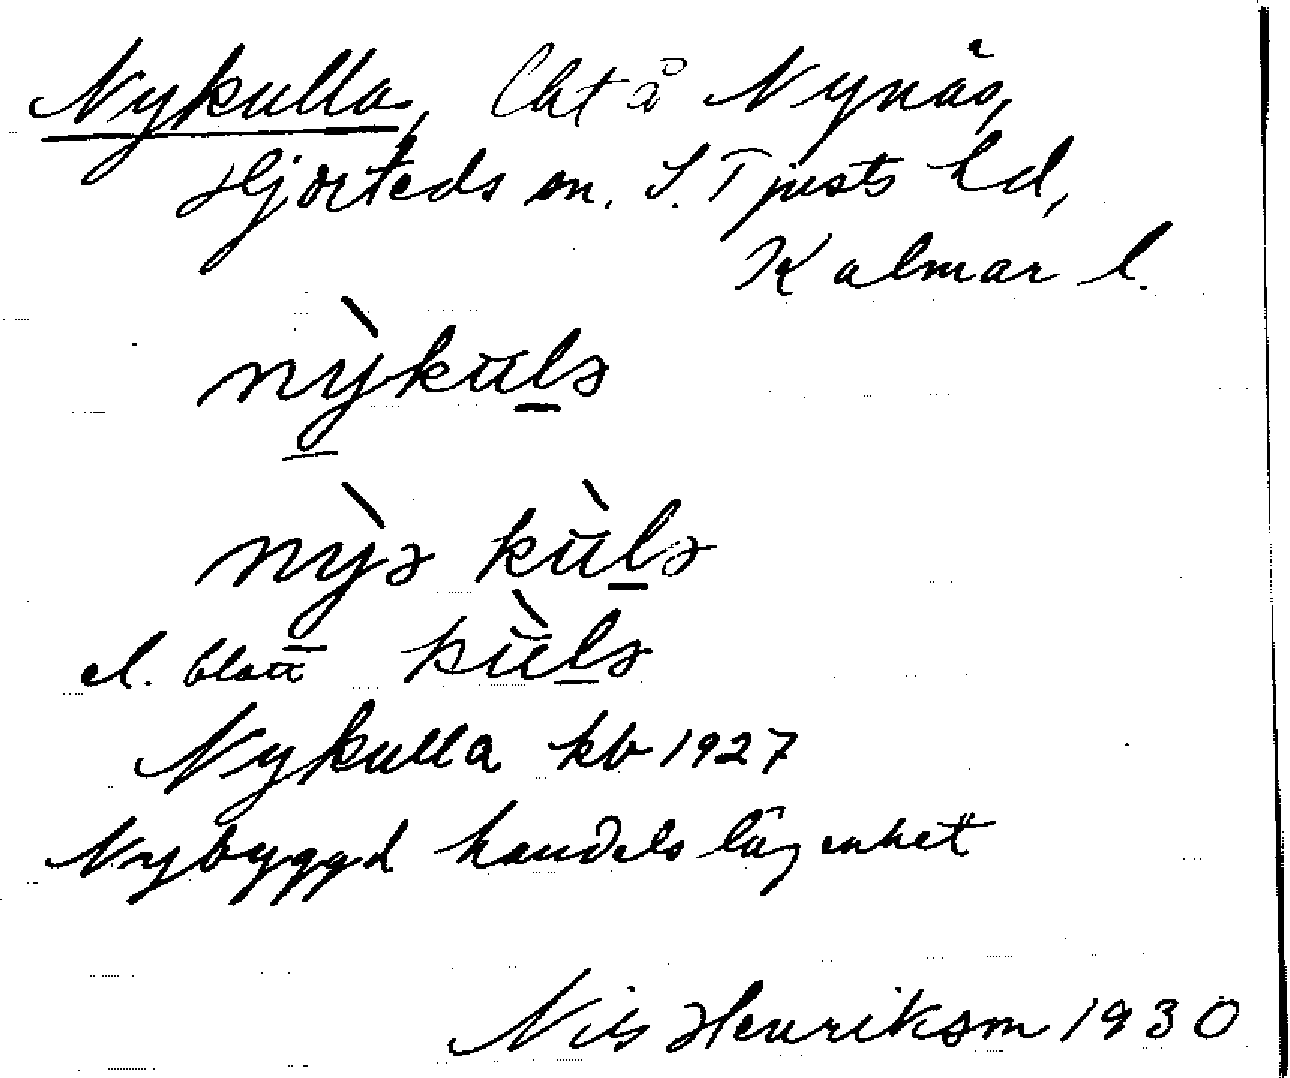 Nykulla, lht å Nynäs,
Hjorteds sn. S. Tjusts hd,
Kalmar l.
nỳkulə
nỳə kùlə
el. blott kùlə
Nykulla kb 1927
Nybyggd handelslägenhet
Nils Henriksson 1930